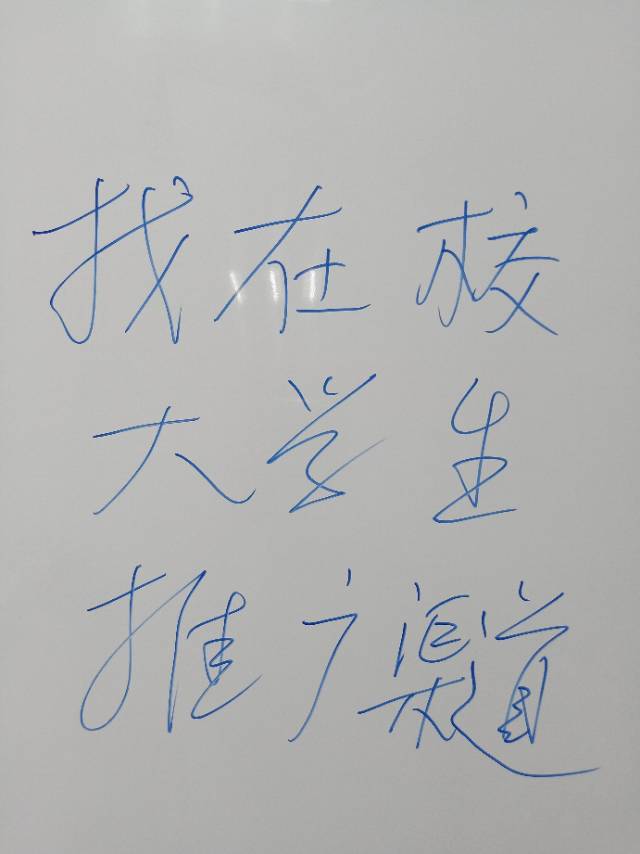 找在校
大学生
推广渠道